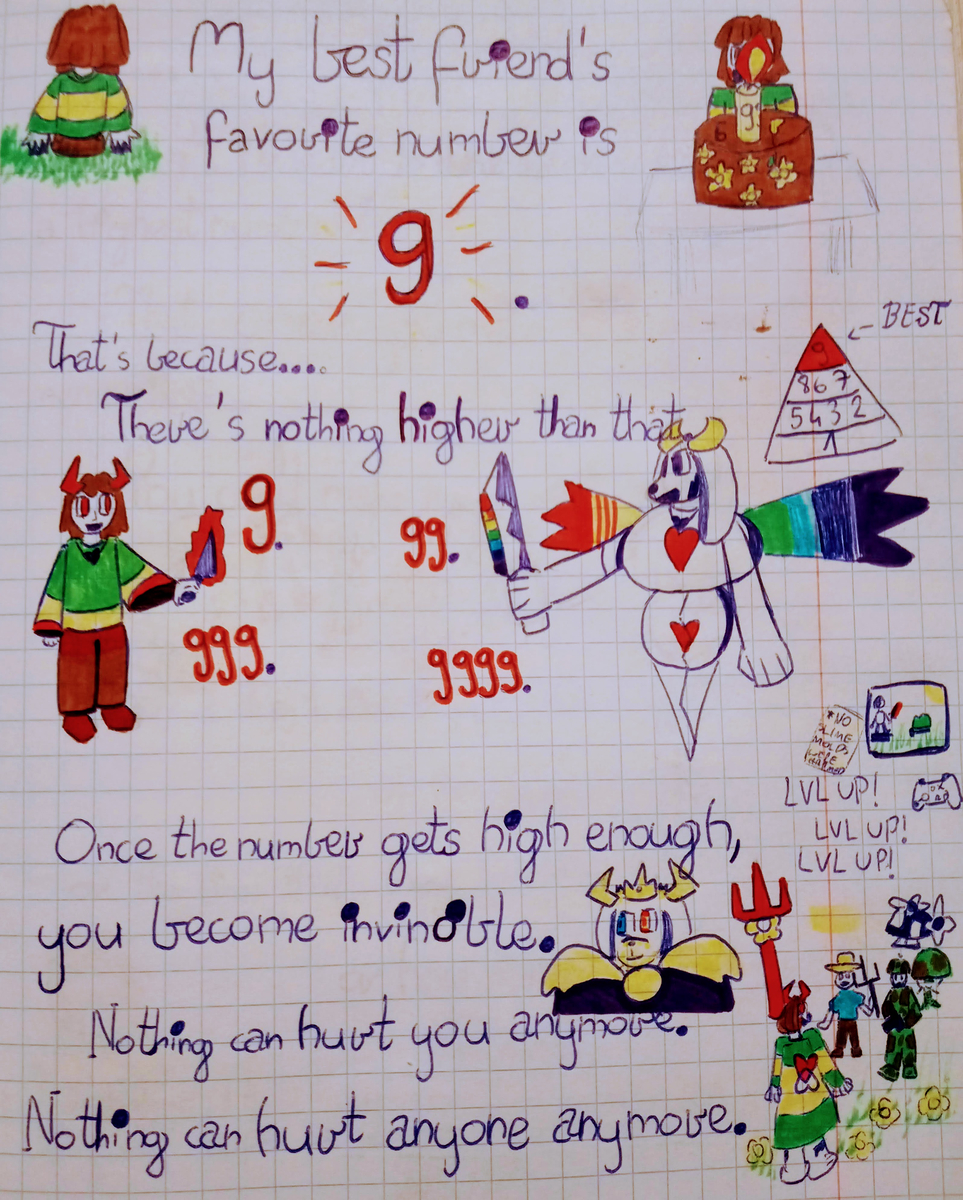 My best friend's
favourite number is
9
6 9
9.
That's because....
← BEST
9
8 6 7
5 4 3 2
1
There's nothing higher than that.
9.
99.
999.
9999.
*NO
SLIME
MOLDS
WERE
HARMED
LVL UP!
LVL UP!
LVL UP!
Once the number gets high enough,
you become invincible.
Nothing can hurt you anymore.
Nothing can hurt anyone anymore.
6